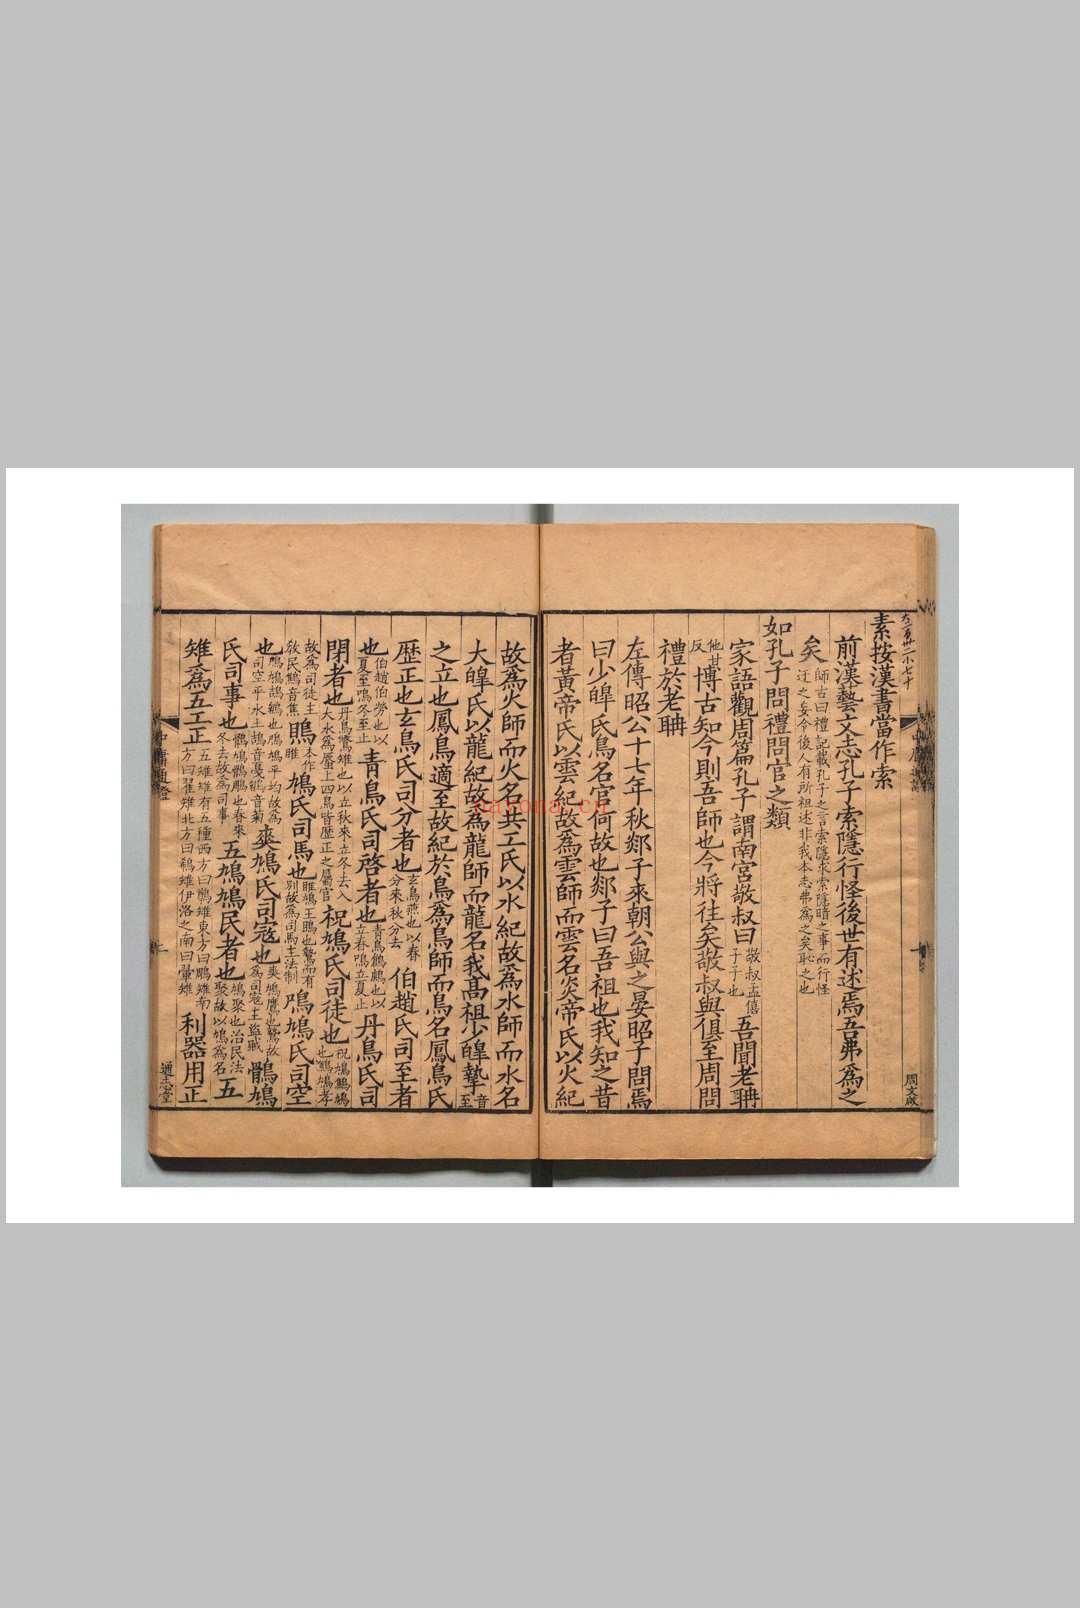 素按漢書當作索
前漢藝文志孔子索隱行怪後世有述焉吾弗為之
矣師古曰禮記載孔子之言索隱求索隱暗之事而行怪
迂之妄令後人有所祖述非我本志弗為之矣恥之也
如孔子問禮問官之類
家語觀周篇孔子謂南宮敬叔曰敬叔孟僖子子也吾聞老聃
他甘反博古知今則吾師也今將往矣敬叔與俱至周問
禮於老聃
左傳昭公十七年秋郯子來朝公與之晏昭子問焉
曰少皥氏鳥名官何故也郯子曰吾祖也我知之昔
者黃帝氏以雲紀故為雲師而雲名炎帝氏以火紀
故為火師而火名共工氏以水紀故為水師而水名
大皥氏以龍紀故為龍師而龍名我高祖少皥摯音至
之立也鳳鳥適至故紀於鳥為鳥師而鳥名鳳鳥氏
歷正也玄鳥氏司分者也玄鳥燕也以春分來秋分去伯趙氏司至者
也伯趙伯勞也以夏至鳴冬至止青鳥氏司啓者也青鳥鶬鴳也以立春鳴立夏止丹鳥氏司
閉者也丹鳥鷩雉也以立秋來立冬去入大水為蜃上四鳥皆歷正之屬官祝鳩氏司徒也祝鳩鷦鳩也鷦鳩孝
故為司徒主敎民鷦音焦鴡本作雎鳩氏司馬也雎鳩王鴡也鷙而有別故為司馬主法制鳲鳩氏司空
也鳲鳩鴶鵴也鳲鳩平均故為司空平水土鴶音戞鵴音菊爽鳩氏司寇也爽鳩鷹也鷙故為司寇主盜賊鶻鳩
氏司事也鶻鳩鶻鵰也春來冬去故為司事五鳩鳩民者也鳩聚也治民法聚故以鳩為名五
雉為五工正五雉雉有五種西方曰鷷雉東方曰鶅雉南方曰翟雉北方曰鵗雉伊洛之南曰翬雉利器用正
中庸通證
二
通志堂
周文啟
nayona.cn